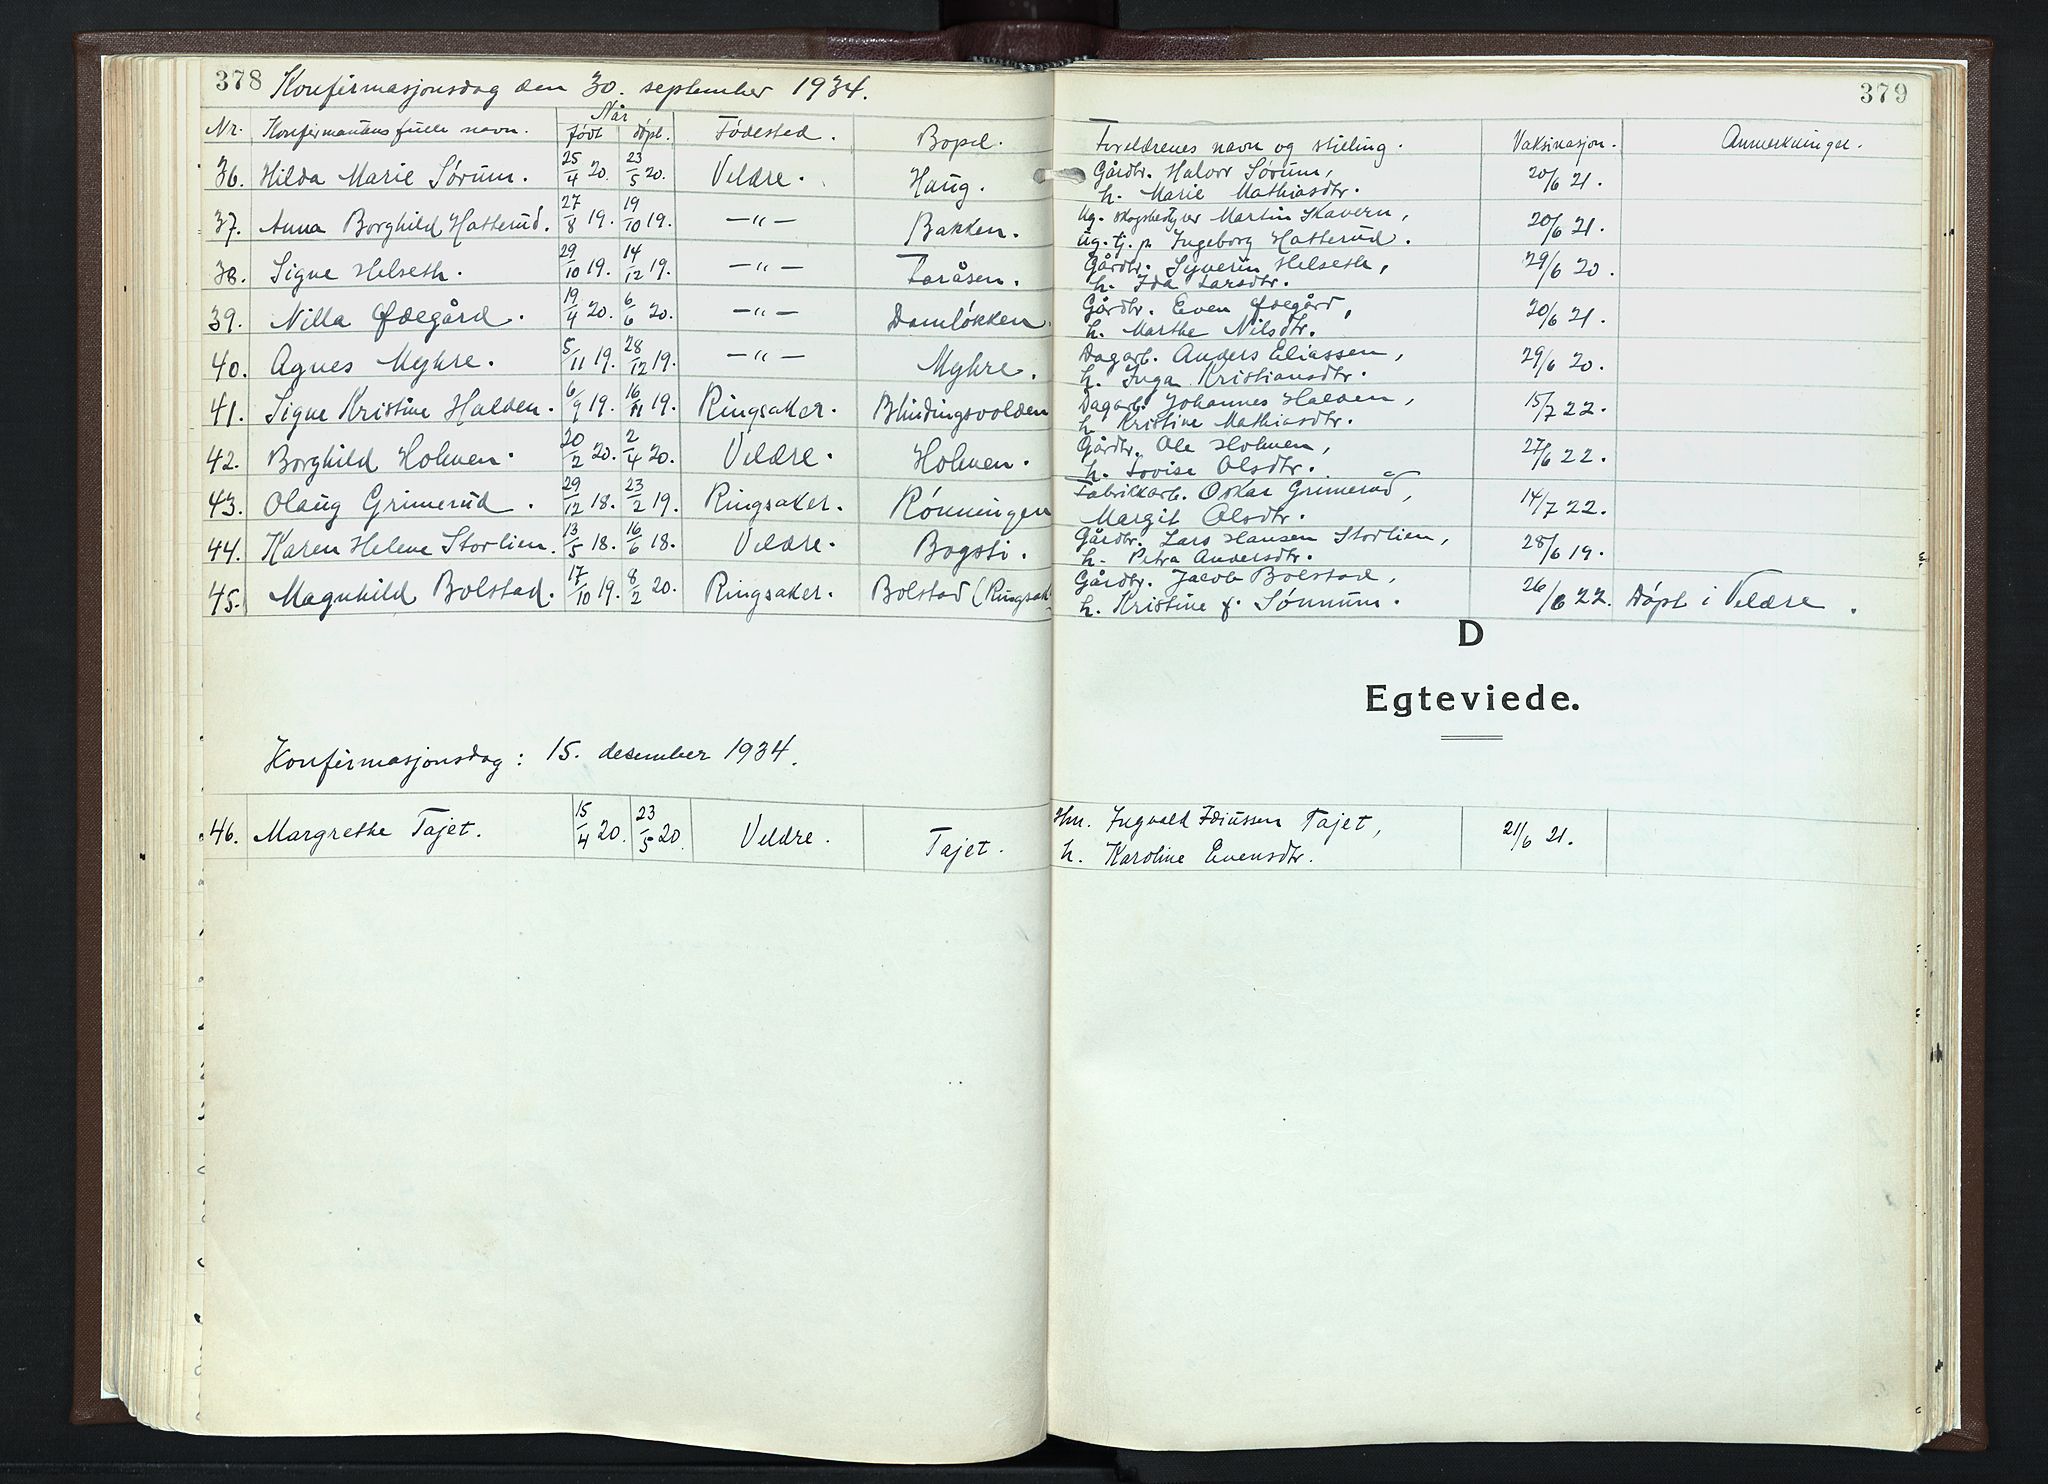 378 Konfirmasjonsdag den 30. september 1934. 379
Når
Nr. Konfirmantens fulle navn. født døpt. Fødested. Bopel. Foreldrenes navn og stilling. Vaksinasjon. Anmerkninger.
36. Hilda Marie Sørum. 25/4 20. 23/5 20. Veldre. Haug. Gårdbr. Halvor Sørum, 20/6 21.
h. Marie Mathiasdtr.
37. Anna Borghild Hatterud. 27/8 19. 19/10 19. —"— Bakken. Ug. skogsbestyrer Martin Skavern, 20/6 21.
ug. tj. p. Ingeborg Hatterud.
38. Signe Helseth. 29/10 19. 14/12 19. —"— Faråsen. Gårdbr. Syverin Helseth, 29/6 20.
h. Ida Larsdtr.
39. Nilla Ødegård. 19/4 20. 6/6 20. —"— Damløkken. Gårdbr. Even Ødegård, 20/6 21.
h. Marthe Nilsdtr.
40. Agnes Myhre. 5/11 19. 28/12 19. —"— Myhre. Dagarb. Anders Eliassen, 29/6 20.
h. Inga Kristiansdtr.
41. Signe Kristine Halden. 6/9 19. 16/11 19. Ringsaker. Blindingsvolden Dagarb. Johannes Halden, 15/7 22.
h. Kristine Mathiasdtr.
42. Borghild Holmen. 20/2 20. 2/4 20. Veldre. Holmen. Gårdbr. Ole Holmen, 27/6 22.
h. Lovise Olsdtr.
43. Olaug Grimerud. 29/12 18. 23/2 19. Ringsaker. Rønningen Fabrikkarb. Oskar Grimerud, 14/7 22.
Margit Olsdtr.
44. Karen Helene Storlien. 13/5 18. 16/6 18. Veldre. Bogsti. Gårdbr. Lars Hansen Storlien, 28/6 19.
h. Petra Andersdtr.
45. Magnhild Bolstad. 17/10 19. 8/2 20. Ringsaker. Bolstad (Ringsak. Gårdbr. Jacob Bolstad, 26/6 22. Døpt i Veldre.
h. Kristine f. Sønnum.
D
Egteviede.
Konfirmasjonsdag: 15. desember 1934.
46. Margrethe Tajet. 15/4 20. 23/5 20. Veldre. Tajet. Hm. Ingvald Idiussen Tajet, 21/6 21.
h. Karoline Evensdtr.